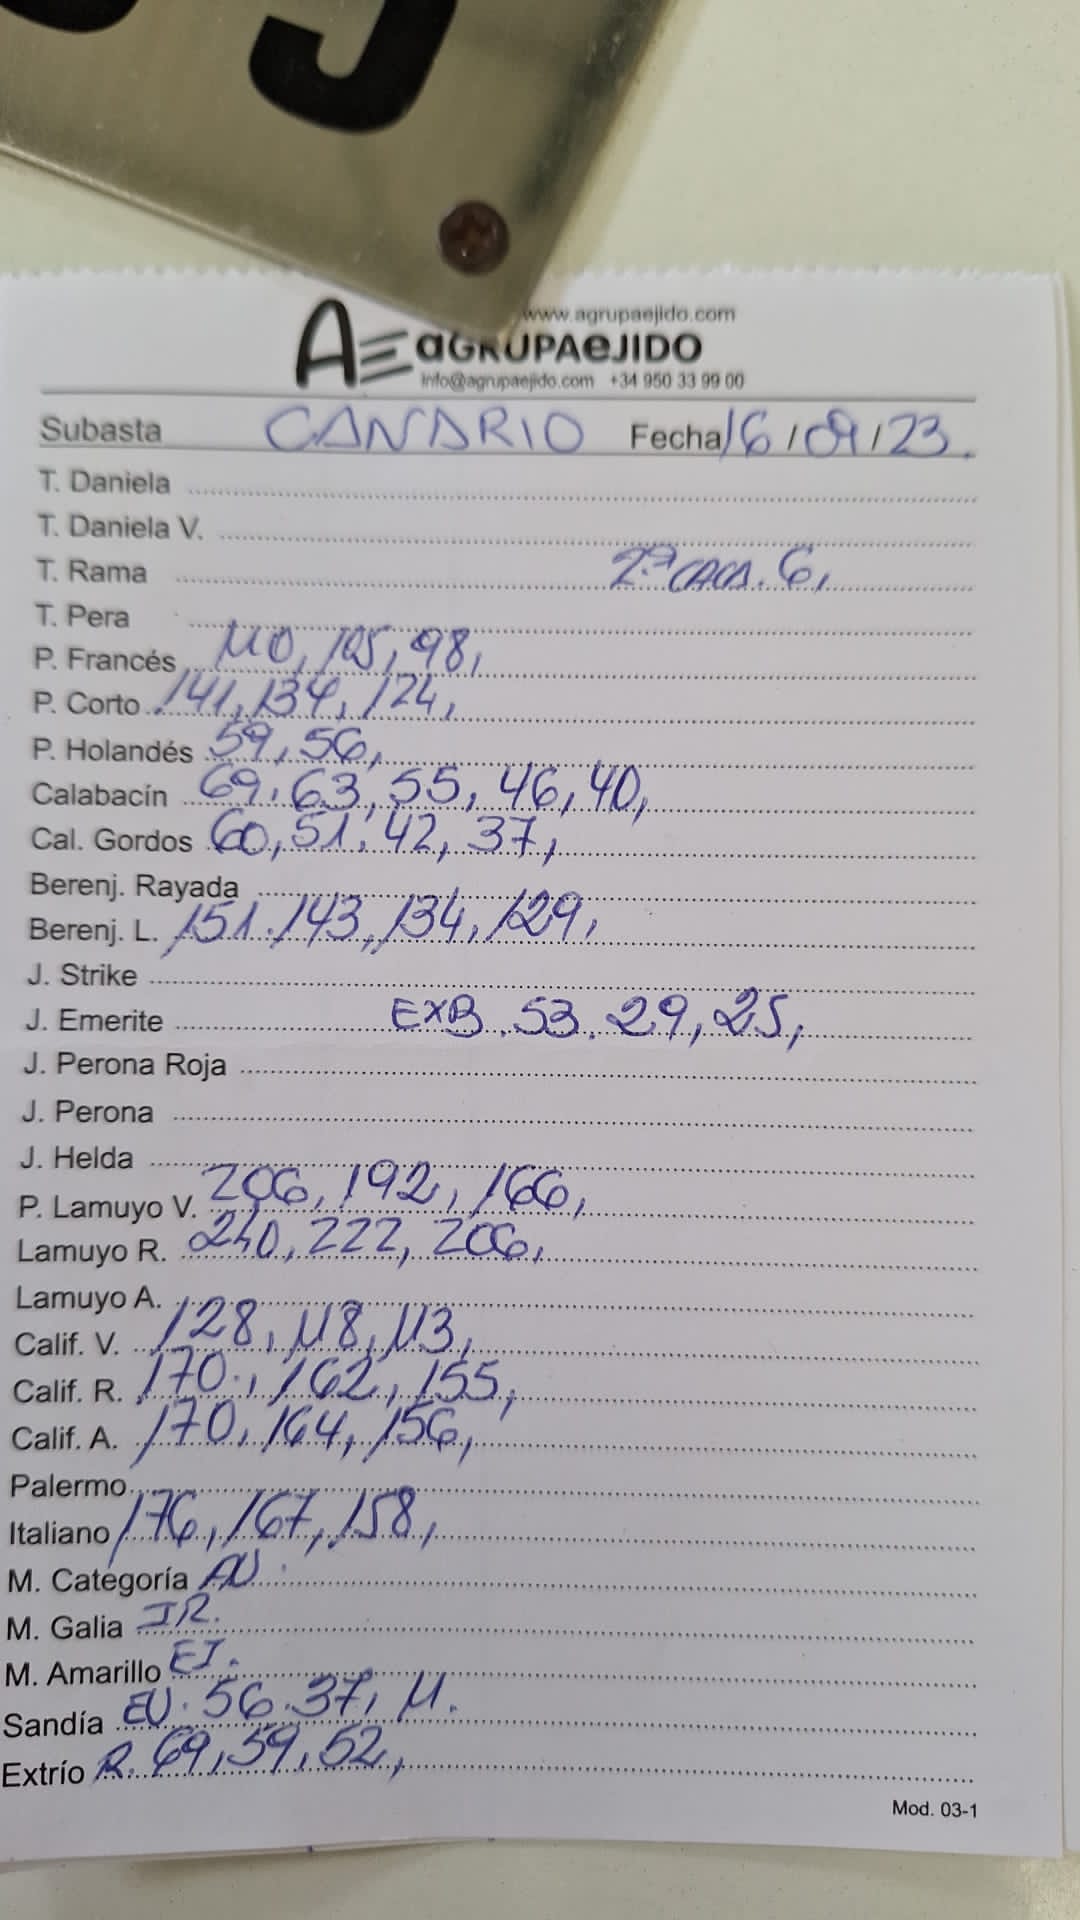 www.agrupaejido.com
AE aGRUPAeJIDO
info@agrupaejido.com +34 950 33 99 00
Subasta CANARIO Fecha 16/09/23.
T. Daniela
T. Daniela V.
T. Rama 2ª CACA. 6,
T. Pera
P. Francés 110, 105, 98,
P. Corto 141, 134, 124,
P. Holandés 59, 56,
Calabacín 69, 63, 55, 46, 40,
Cal. Gordos 60, 51, 42, 37,
Berenj. Rayada
Berenj. L. 151. 143, 134, 129,
J. Strike
J. Emerite EXB. 53. 29, 25,
J. Perona Roja
J. Perona
J. Helda
P. Lamuyo V. 206, 192, 166,
Lamuyo R. 240, 222, 206,
Lamuyo A.
Calif. V. 128, 118, 113,
Calif. R. 170., 162, 155,
Calif. A. 170, 164, 156,
Palermo
Italiano 176, 167, 158,
M. Categoría AU.
M. Galia IR.
M. Amarillo EJ.
Sandía EU. 56. 37, 11.
Extrío R. 69, 59, 52,
Mod. 03-1